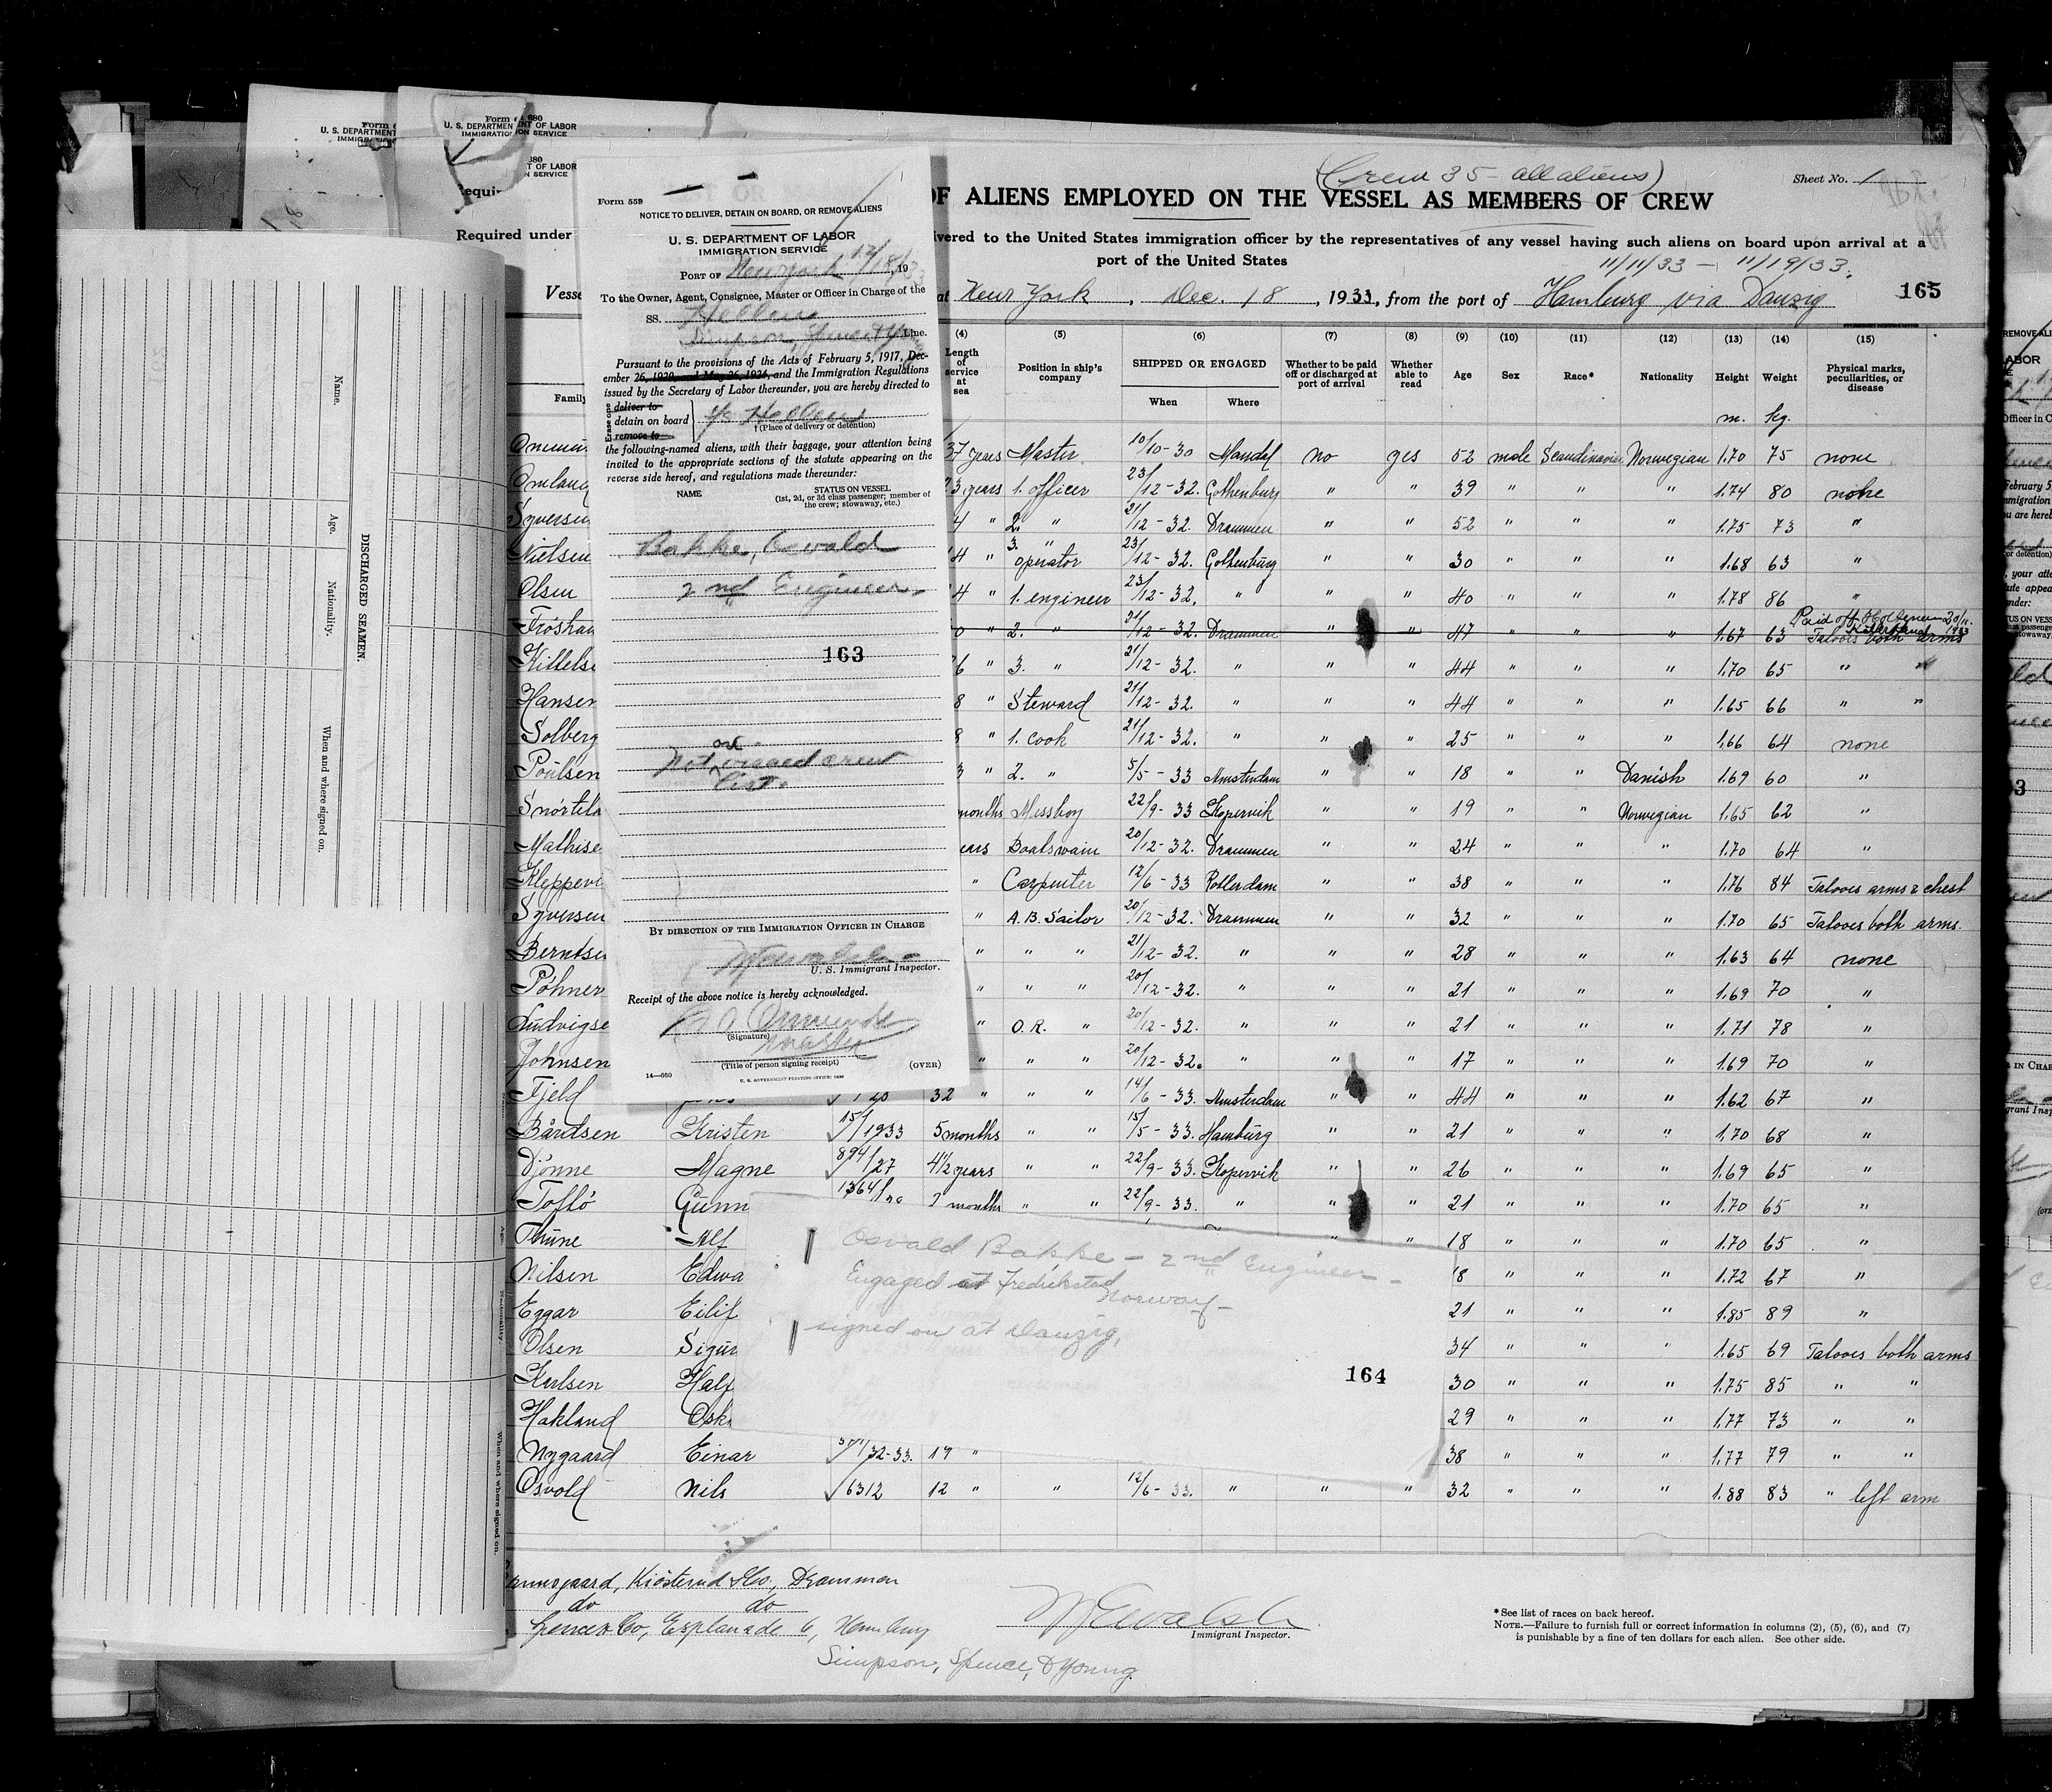 Form 680
U. S. DEPARTMENT OF LABOR
IMMIGRATION SERVICE
(Crew 35 - all aliens)
Sheet No. 1
OF ALIENS EMPLOYED ON THE VESSEL AS MEMBERS OF CREW
Required under
vered to the United States immigration officer by the representatives of any vessel having such aliens on board upon arrival at a
port of the United States
11/11/33 — 11/19/33.
at New York, Dec. 18, 1933, from the port of Hamburg via Danzig
165
Form 559
NOTICE TO DELIVER, DETAIN ON BOARD, OR REMOVE ALIENS
U. S. DEPARTMENT OF LABOR
IMMIGRATION SERVICE
PORT OF New York 12/18/33, 19
To the Owner, Agent, Consignee, Master or Officer in Charge of the
SS.
Simpson, Spence & Young Line.
Pursuant to the provisions of the Acts of February 5, 1917, Dec-
ember 26, 1920, and May 26, 1924, and the Immigration Regulations
issued by the Secretary of Labor thereunder, you are hereby directed to
Erase one
deliver to
detain on board
remove to
† (Place of delivery or detention)
the following-named aliens, with their baggage, your attention being
invited to the appropriate sections of the statute appearing on the
reverse side hereof, and regulations made thereunder:
NAME
STATUS ON VESSEL
(1st, 2d, or 3d class passenger; member of
the crew; stowaway, etc.)
Bakke, Osvald
2nd Engineer.
163
Not on visaed crew
list.
BY DIRECTION OF THE IMMIGRATION OFFICER IN CHARGE
U. S. Immigrant Inspector.
Receipt of the above notice is hereby acknowledged.
(Signature)
Master
(Title of person signing receipt)
(OVER)
14—660
U. S. GOVERNMENT PRINTING OFFICE: 1930
(4) (5) (6) (7) (8) (9) (10) (11) (12) (13) (14) (15)
Length of service at sea
Position in ship's company
SHIPPED OR ENGAGED
When Where
Whether to be paid off or discharged at port of arrival
Whether able to read
Age
Sex
Race*
Nationality
Height
Weight
Physical marks, peculiarities, or disease
m. kg.
37 years Master 10/10-30 Mandal no yes 52 male Scandinavian Norwegian 1.70 75 none
3 years 1. officer 23/12-32. Gothenburg " " 39 " " " 1.74 80 none
Syversen 4 " 2. " 21/12-32. Drammen " " 52 " " " 1.75 73 "
Nielsen 4 " 3. " operator 23/12-32. Gothenburg " " 30 " " " 1.68 63 "
Olsen 4 " 1. engineer 23/12-32. " " " 40 " " " 1.78 86 "
0 " 2. " 21/12-32. Drammen " " 47 " " " 1.67 63 Tatooes both arms
Paid off Holtenau 20/11. 1933
6 " 3. " 21/12-32. " " " 44 " " " 1.70 65 " "
Hansen 8 " Steward 21/12-32. " " " 44 " " " 1.65 66 " "
Solberg 8 " 1. Cook 21/12-32. " " " 25 " " " 1.66 64 none
Poulsen 3 " 2. " 5/5-33 Amsterdam " " 18 " " Danish 1.69 60 "
months Messboy 22/9-33 Kopervik " " 19 " " Norwegian 1.65 62 "
Mathise ears Boatswain 20/12-32. Drammen " " 24 " " " 1.70 64 "
" Carpenter 12/6-33 Rotterdam " " 38 " " " 1.76 84 Tatooes arms & chest
Syversen " A.B. Sailor 20/12-32. Drammen " " 32 " " " 1.70 65 Tatooes both arms.
Berntse " " " 21/12-32. " " " 28 " " " 1.63 64 none
Pöhner " " " 20/12-32. " " " 21 " " " 1.69 70 "
Ludvigse " O.R. " 20/12-32. " " " 21 " " " 1.71 78 "
Johnsen " " " 20/12-32. " " " 17 " " " 1.69 70 "
Fjeld 32 " " " 14/6-33. Amsterdam " " 44 " " " 1.62 67 "
Bårdsen Kristen 15/1933 5 months " " 15/5-33. Hamburg " " 21 " " " 1.70 68 "
Djönne Magne 894/27 4½ years " " 22/9-33. Kopervik " " 26 " " " 1.69 65 "
Toflö Gunn 7 months " " 22/9-33. " " " 21 " " " 1.70 65 "
Thune Alf " " 18 " " " 1.70 65 "
Nilsen Edwa 18 " " " 1.72 67 "
Eggar Eilif 21 " " " 1.85 89 "
Olsen Sigur 34 " " " 1.65 69 Tatooes both arms
Karlsen Half 30 " " " 1.75 85 " "
Hakland Oska 29 " " " 1.77 73 " "
Nygaard Einar 32-33. 19 " 38 " " " 1.77 79 " "
Osvold Nils 6312 12 " " 12/6-33. " " " 32 " " " 1.88 83 " left arm
Osvald Bakke - 2nd Engineer -
Engaged at Fredrikstad Norway -
signed on at Danzig,
164
Kiösterud & Co., Drammen
do do
Spence & Co, Esplanade 6, Hamburg
Simpson, Spence, & Young.
Immigrant Inspector.
* See list of races on back hereof.
NOTE.—Failure to furnish full or correct information in columns (2), (5), (6), and (7)
is punishable by a fine of ten dollars for each alien. See other side.
DISCHARGED SEAMEN.
Name.
Age.
Nationality.
When and where signed on.